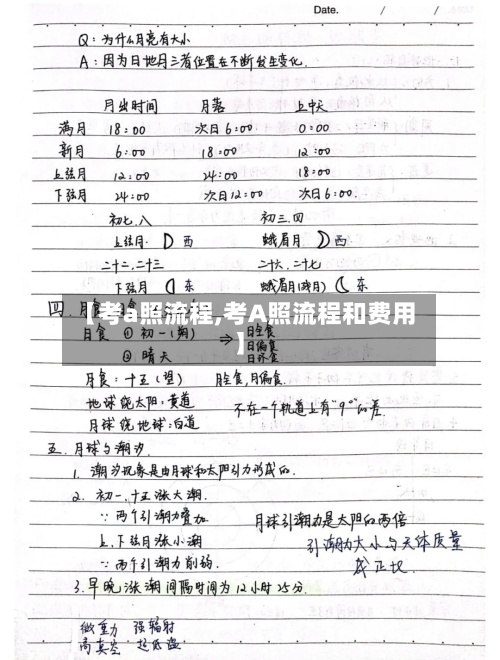 Date. / /
Q：为什么月亮有大小
A：因为日地月三者位置在不断发生变化.
月出时间 月落 上中天
满月 18:00 次日6:00 0:00
新月 6:00 18:00 12:00
上弦月 12:00 24:00 18:00
下弦月 24:00 次日12:00 次日6:00.
初七.八 初三.四
上弦月. 西 蛾眉月 西
二十二,二十三 二十六,二十七
下弦月 东 蛾眉月(残月) 东
四.月
【考a照流程,考A照流程和费用】
日食 ① 初一(朔) 日全食
日偏食
② 晴天 日环食
月食：十五(望) 月全食,月偏食.
地球绕太阳:黄道
不在一个轨道上有"9°"的差.
月球绕地球:白道
五.月球与潮汐
1. 潮汐现象是由月球和太阳引力形成的.
2. 初一.十五涨大潮.
∵两个引潮力叠加
月球引潮力是太阳的两倍
上.下弦月涨小潮
引潮力大小与天体质量
∵两个引潮力削弱.
成正比.
3.早晚涨潮间隔时间为12小时25分.
微重力 强辐射
高真空 超低温